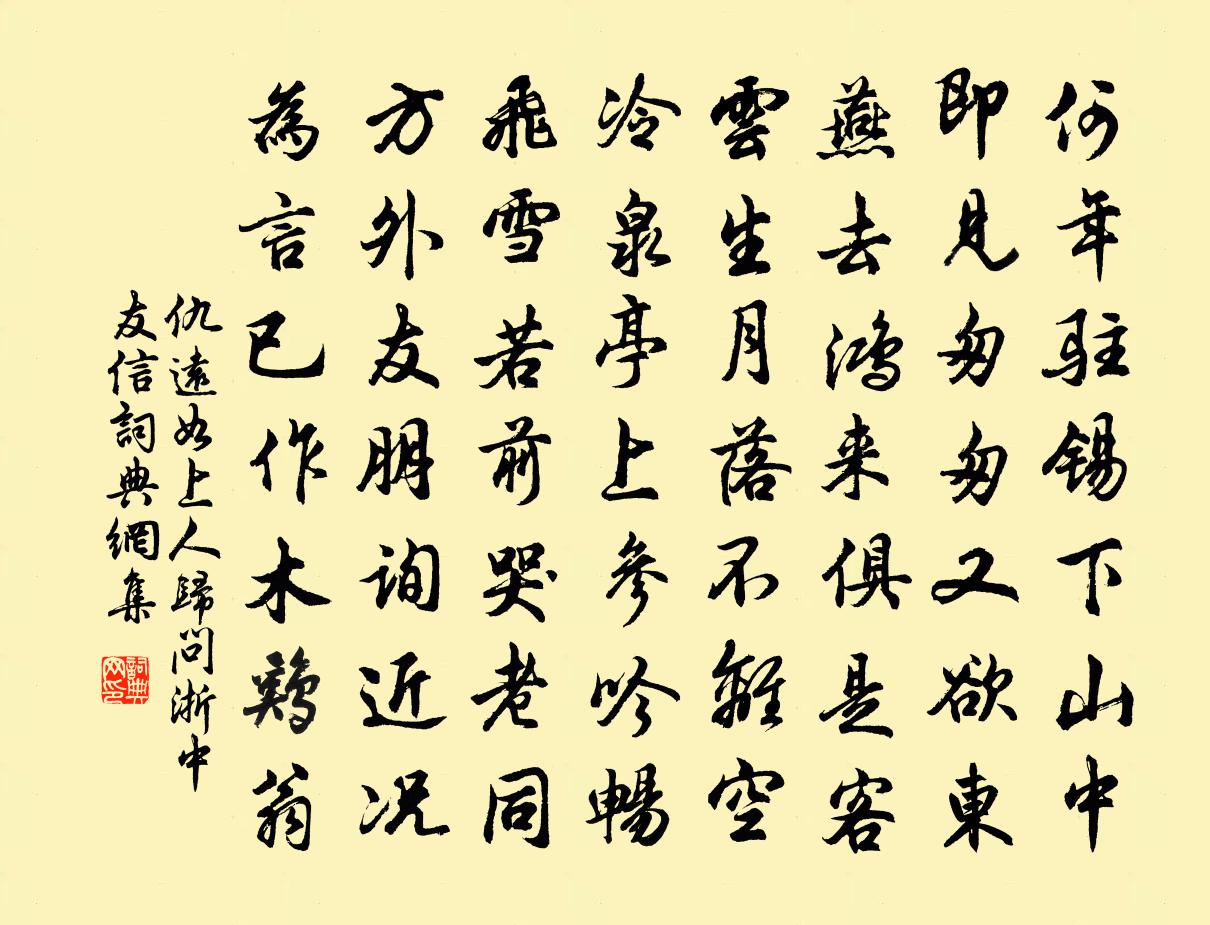 何年駐錫下山中
即見匆匆又欲東
燕去鴻来俱是客
雲生月落不離空
冷泉亭上參吟暢
飛雪若前哭老同
方外友朋詢近况
為言已作木鷄翁
仇遠如上人歸問浙中
友信詞典網集
詞典
网印